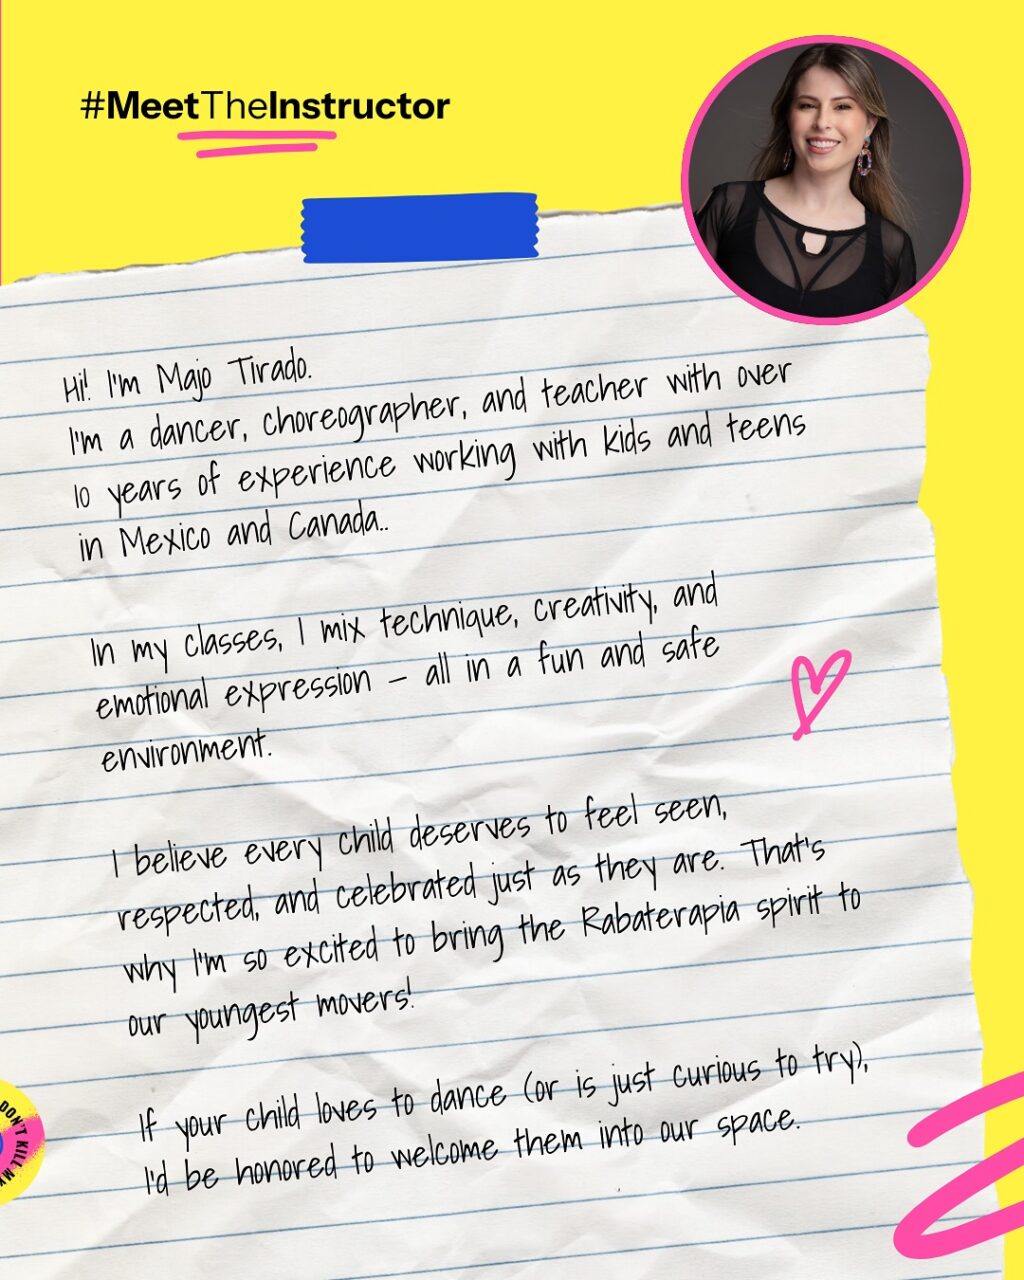 #MeetTheInstructor
Hi! I'm Majo Tirado.
I'm a dancer, choreographer, and teacher with over
10 years of experience working with kids and teens
in Mexico and Canada..
In my classes, I mix technique, creativity, and
emotional expression – all in a fun and safe
environment.
I believe every child deserves to feel seen,
respected, and celebrated just as they are. That's
why I'm so excited to bring the Rabaterapia spirit to
our youngest movers!
If your child loves to dance (or is just curious to try),
I'd be honored to welcome them into our space.
DON'T KILL MY